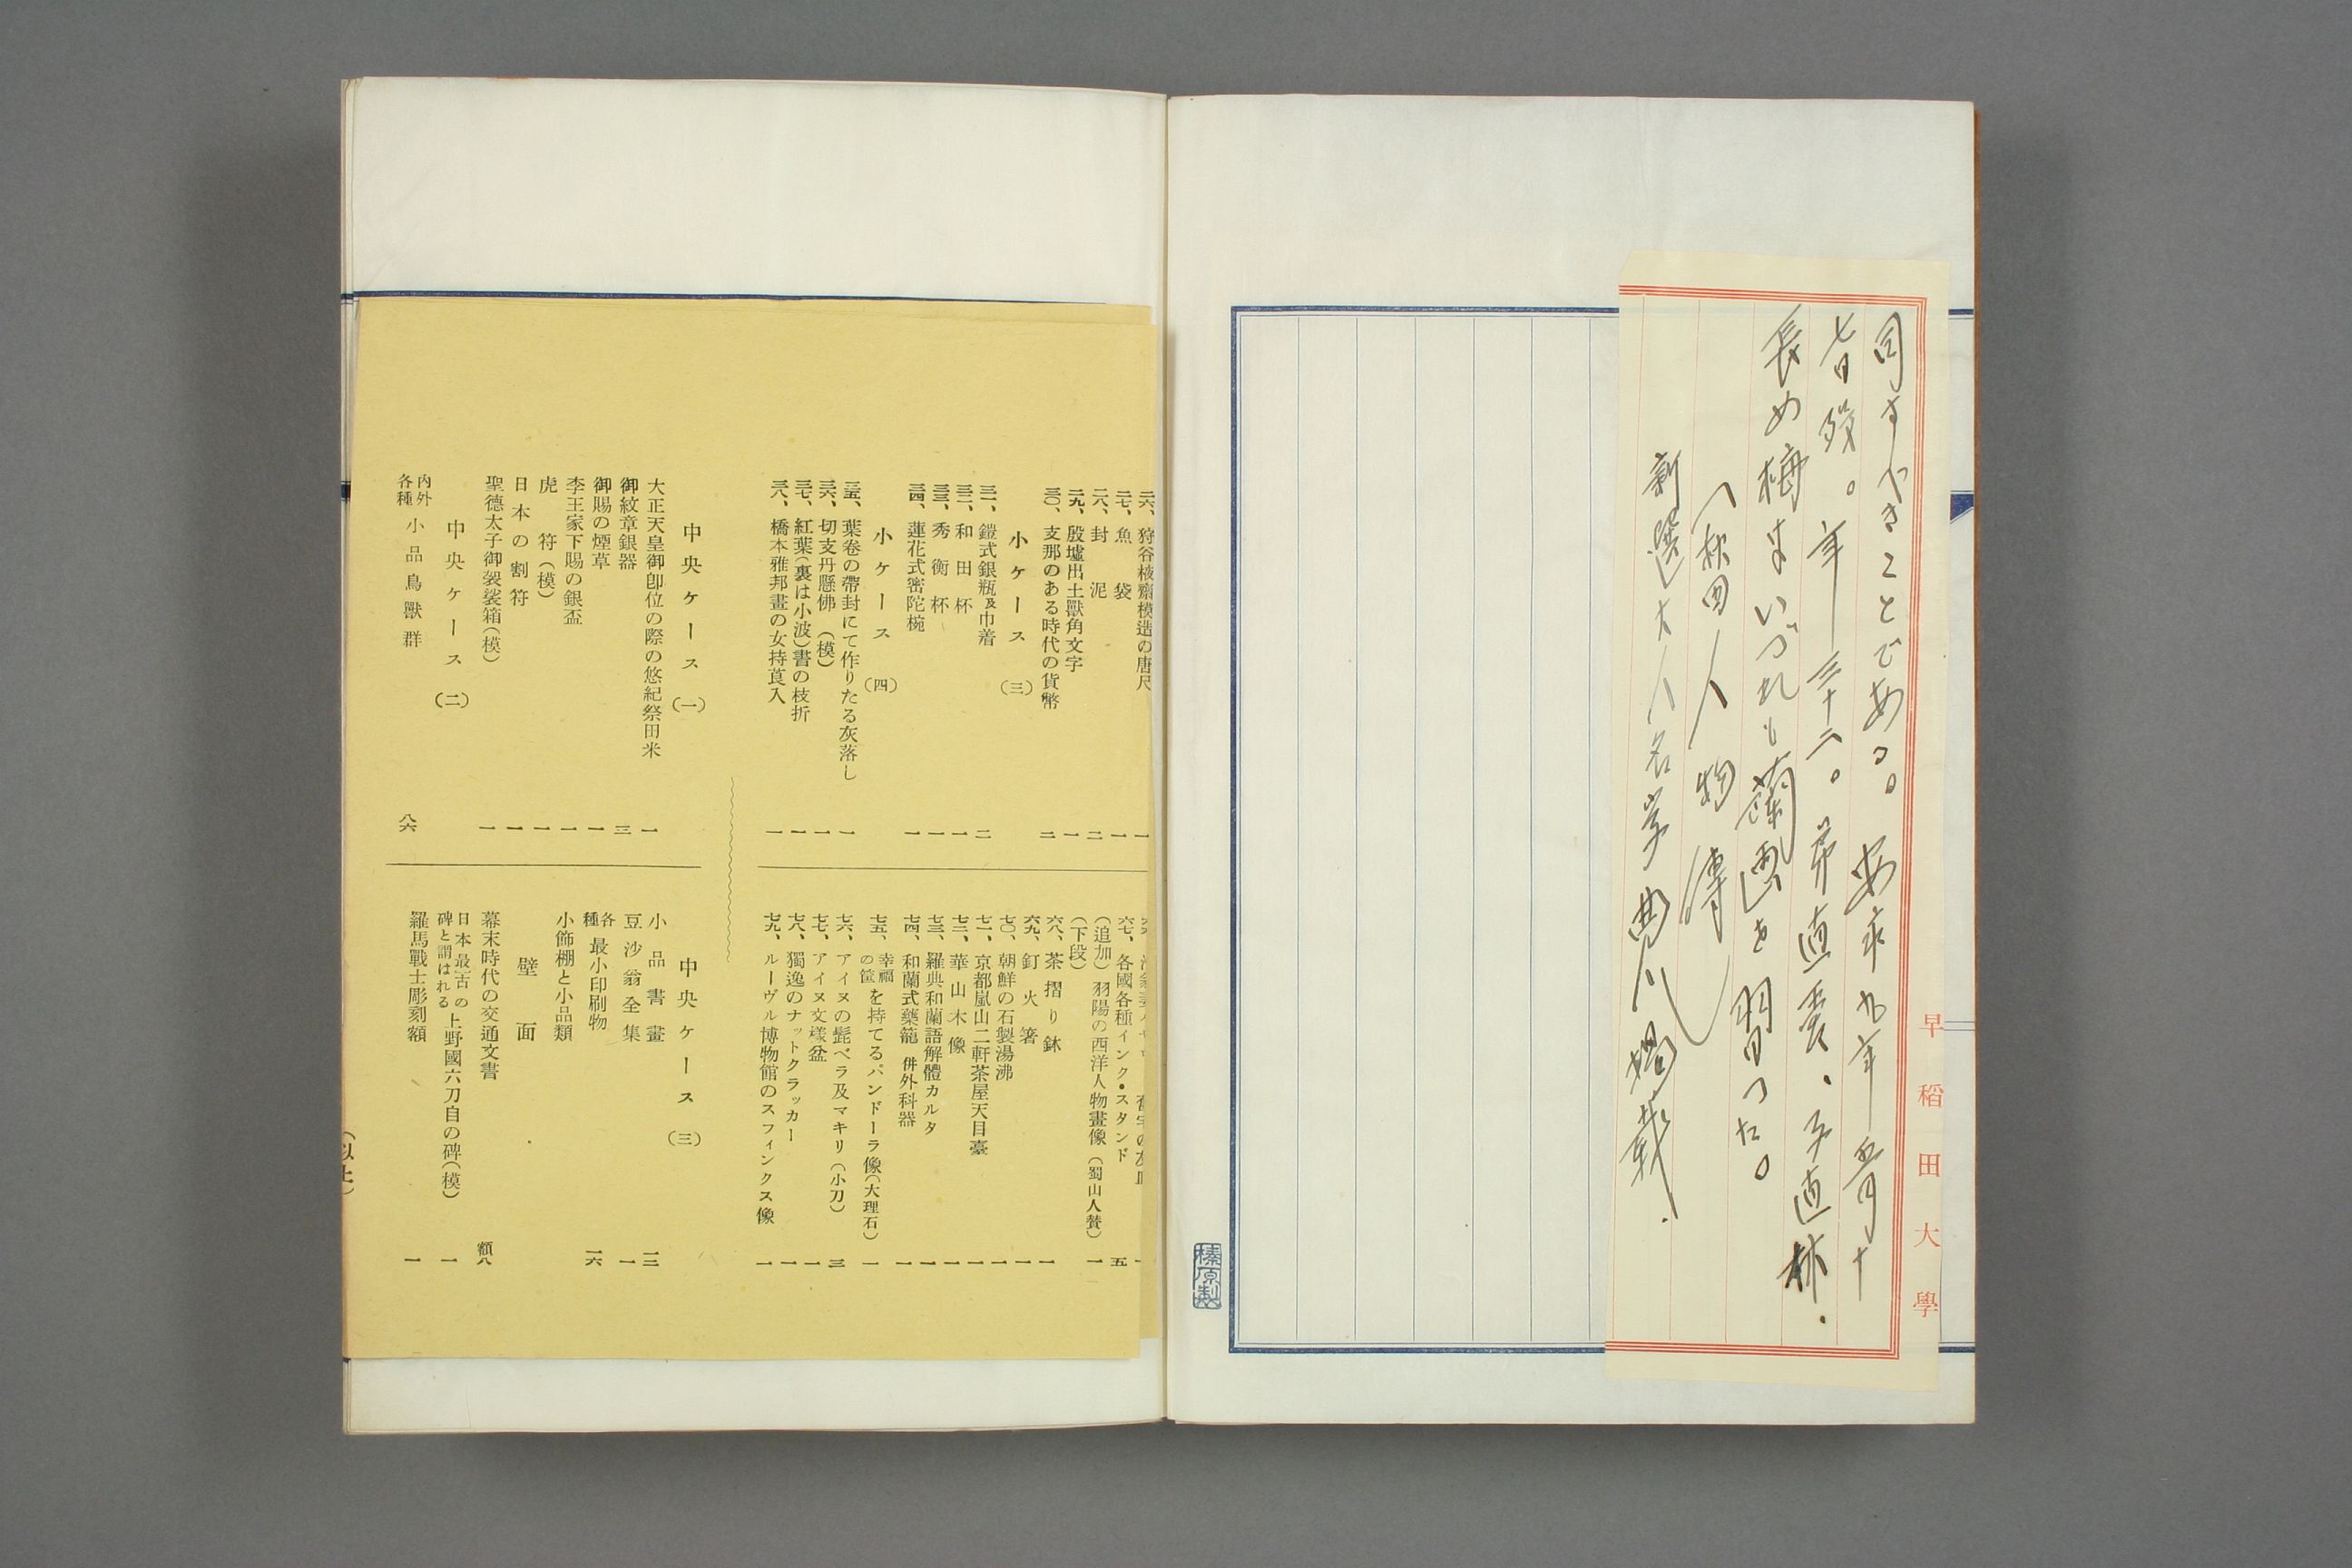 同すべきことである。安永九年五月十
七日歿。年三十二。弟直養、子直林、
長め梅よいづれも蘭画を習つた。
(秋田人物傳)
新選大人名字典八掲載.
早稲田大學
榛原製
二六、狩谷棭齋模造の唐尺 一
二七、魚袋 一
二八、封泥 二
二九、殷墟出土獸角文字 一
三〇、支那のある時代の貨幣 二
小ケース(三)
三一、鎧式銀瓶及巾着 二
三二、和田杯 一
三三、秀衡杯 一
三四、蓮花式密陀椀 一
小ケース(四)
三五、葉卷の帶封にて作りたる灰落し 一
三六、切支丹懸佛(模) 一
三七、紅葉(裏は小波)書の枝折 一
三八、橋本雅邦畫の女持莨入 一
六七、各國各種インク・スタンド 五
(追加)羽陽の西洋人物畫像(蜀山人贊) 一
(下段)
六八、茶摺り鉢 一
六九、釘火箸 一
七〇、朝鮮の石製湯沸 一
七一、京都嵐山二軒茶屋天目臺 一
七二、華山木像 一
七三、羅典和蘭語解體カルタ 一
七四、和蘭式藥籠 併外科器 一
七五、幸福の筐を持てるパンドーラ像(大理石) 一
七六、アイヌの髭ベラ及マキリ(小刀) 三
七七、アイヌ文樣盆 一
七八、獨逸のナットクラッカー 一
七九、ルーヴル博物館のスフィンクス像 一
中央ケース(一)
大正天皇御卽位の際の悠紀祭田米 一
御紋章銀器 三
御賜の煙草 一
李王家下賜の銀盃 一
虎符(模) 一
日本の割符 一
聖德太子御袈裟箱(模) 一
中央ケース(二)
内外各種小品鳥獸群 八六
中央ケース(三)
小品書畫 一二
豆沙翁全集 一
各種最小印刷物 一六
小飾棚と小品類
壁面
幕末時代の交通文書 額八
日本最古の碑と謂はれる上野國六刀自の碑(模) 一
羅馬戰士彫刻額 一
(以上)